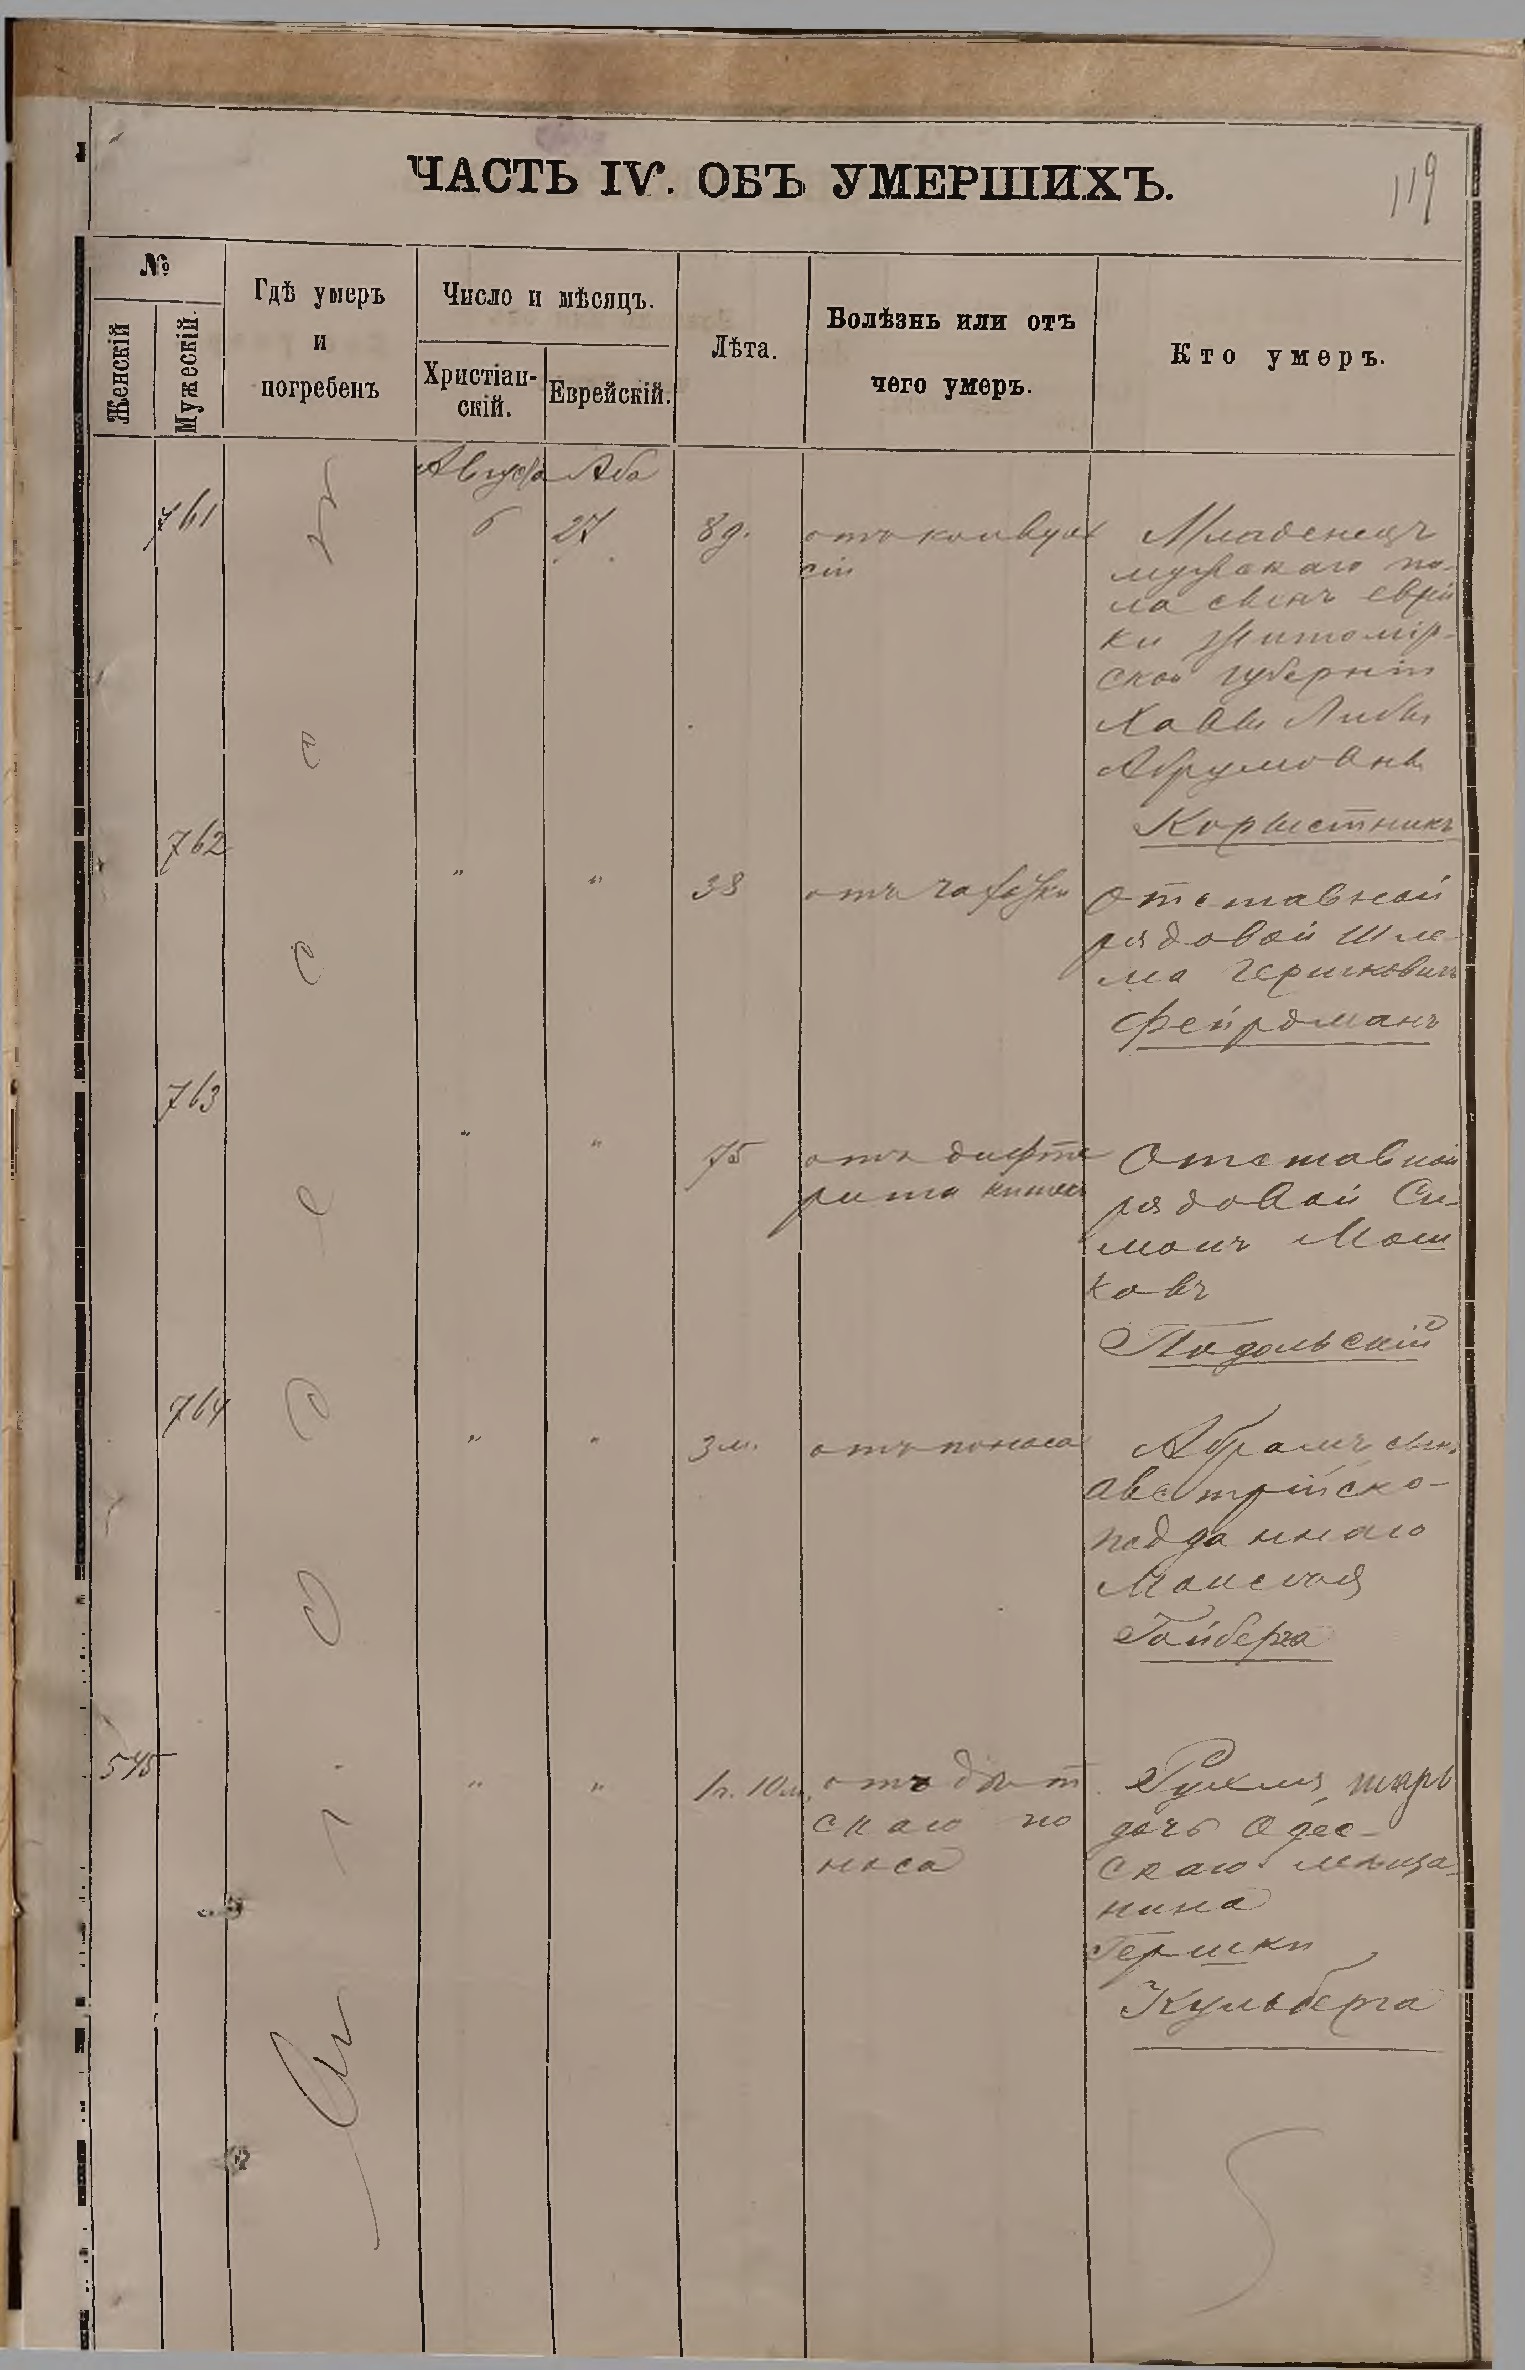 ЧАСТЬ IV. ОБЪ УМЕРШИХЪ.
119
№
Женскій
Мужескій.
Гдѣ умеръ
и
погребенъ
Число и мѣсяцъ.
Христіан-
скій.
Еврейскій.
Лѣта.
Болѣзнь или отъ
чего умеръ.
Кто умеръ.
Августа Аба
761 6 27 8 д. отъ конвуль
сіи
Младенецъ
мужскаго по-
ла сынъ еврей
ки Житомір-
ской губерніи
Хавы Либы
Абрумовны
Корыстникъ
762 " " 38 отъ чахотки
Отставной
рядовой Шле-
ма Гершковичъ
Фейрдманъ
763 " " 75 отъ дифте
рита кишекъ
Отставной
рядовой Си-
монъ Мош
ковъ
Подольскій
764 " " 3 м. отъ поноса
Абрамъ сынъ
австрійско-
подданнаго
Моисея
Гайберга
545 " " 1 г. 10 м. отъ дѣт
скаго по
носа
Рухля
дочь Одес-
скаго мѣща-
нина
Гершки
Кульберга
Въ Одессѣ